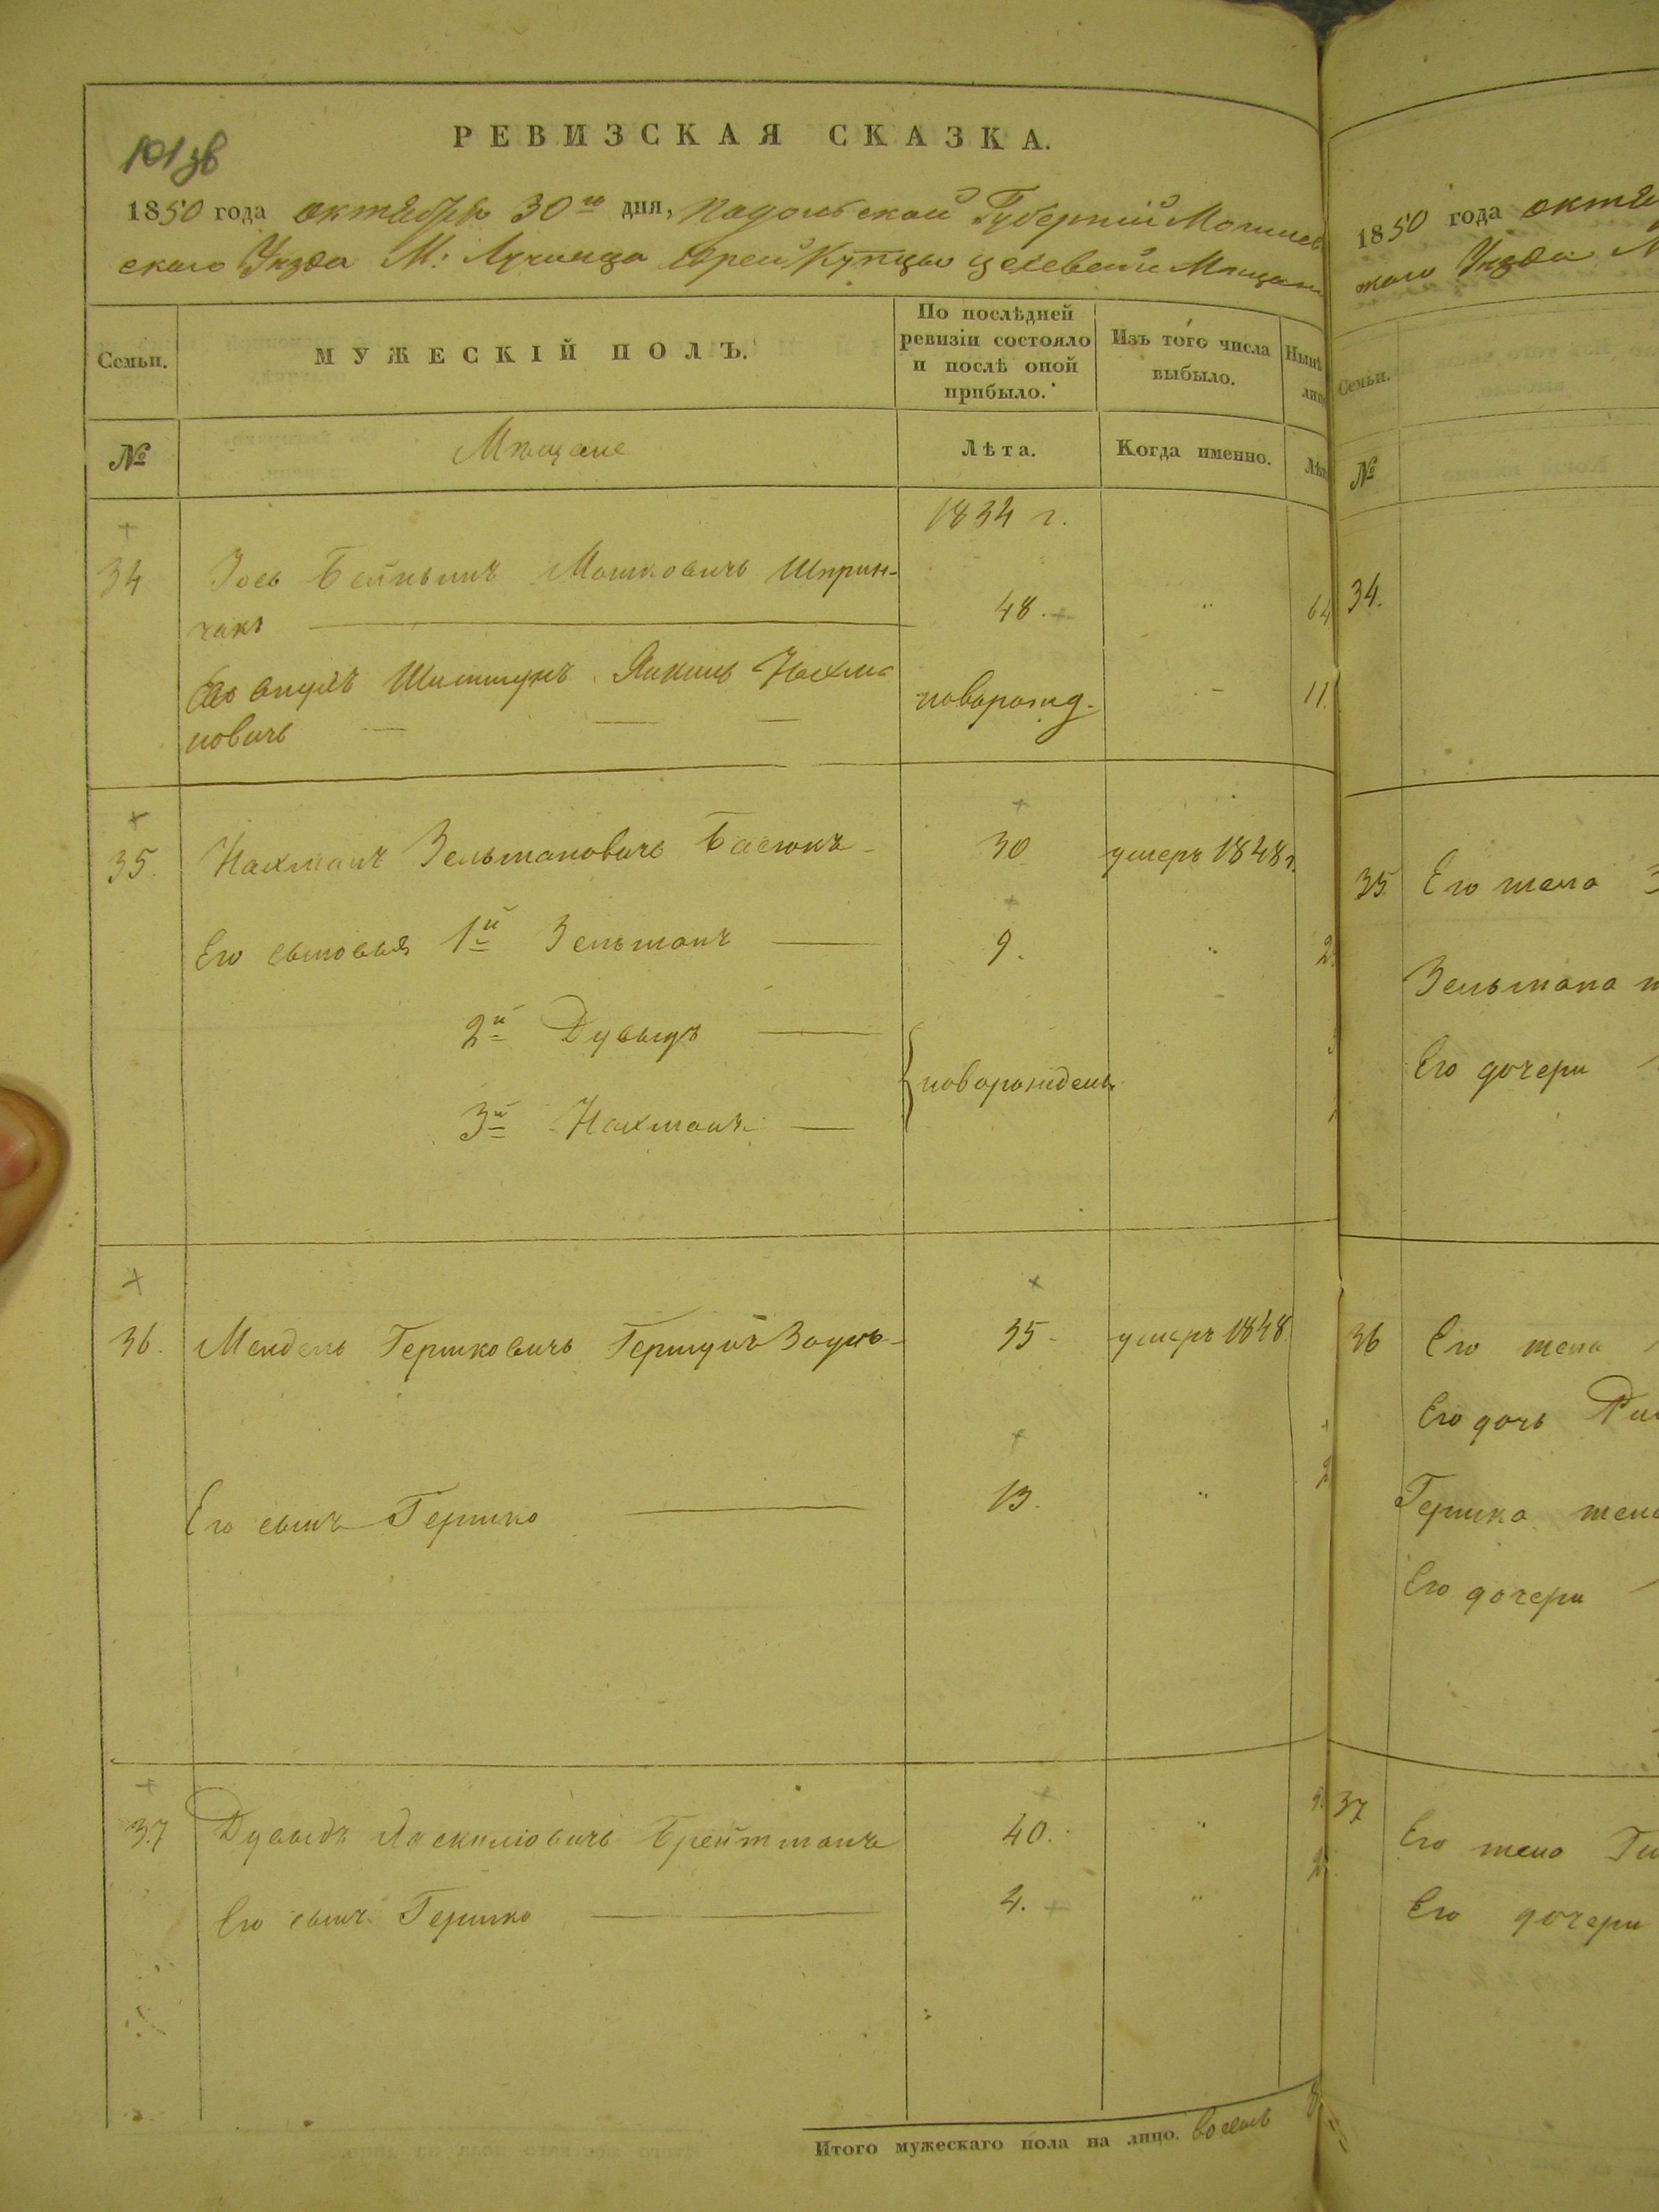 101 зв
РЕВИЗСКАЯ СКАЗКА.
1850 года октября 30го дня, Подольской Губернiи Могилев
скаго Уезда М: Лучинца Евреи Купцы цеховые и Мещане
Семьи.
МУЖЕСКIЙ ПОЛЪ.
По послѣдней
ревизiи состояло
и послѣ оной
прибыло.
Изъ того числа
выбыло.
Нынѣ
лиц
№
Мѣщане
Лѣта.
Когда именно.
Лѣт
1834 г.
34 Iось Бейнышъ Мошковичъ Шприн-
чакъ 48. 64
Его внукъ Янкель Нахма
новичъ новорожд. 11.
35. Нахманъ Зельмановичъ Басюкъ 30 умеръ 1848 г.
Его сыновья 1й Зельманъ 9. 2
2й Дувыдъ
новорожден.
3й Нахманъ
36. Мендель Гершковичъ 35 умеръ 1848.
Его сынъ Гершко 13. 2
37 Дувыдъ Брейтманъ 40.
Его сынъ Гершко 4. 2
Итого мужескаго пола на лицо. восемь 8
1850 года октя
скаго Уезда М
Семьи.
№
34.
35 Его жена З
Зельмана ж
Его дочери
36 Его жена
Его дочь Ри
Гершка жена
Его дочери
37
Его жена Ги
Его дочери